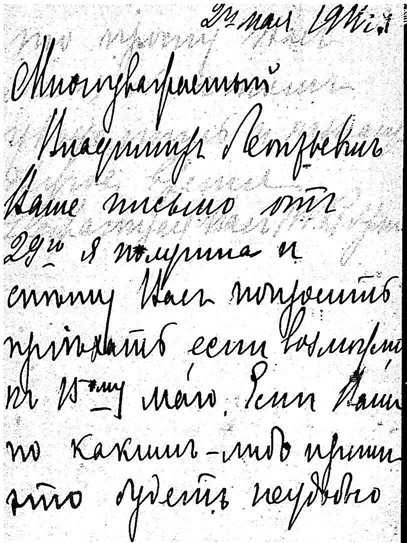 2го мая 1911 г.
Многоуважаемый
Владимиръ Леонтьевичъ
Ваше письмо отъ
29го я получила и
спѣшу Васъ попросить
пріѣхать если возможно
къ 15-ому маю. Если Вамъ
по какимъ-либо причин
это будетъ неудобно